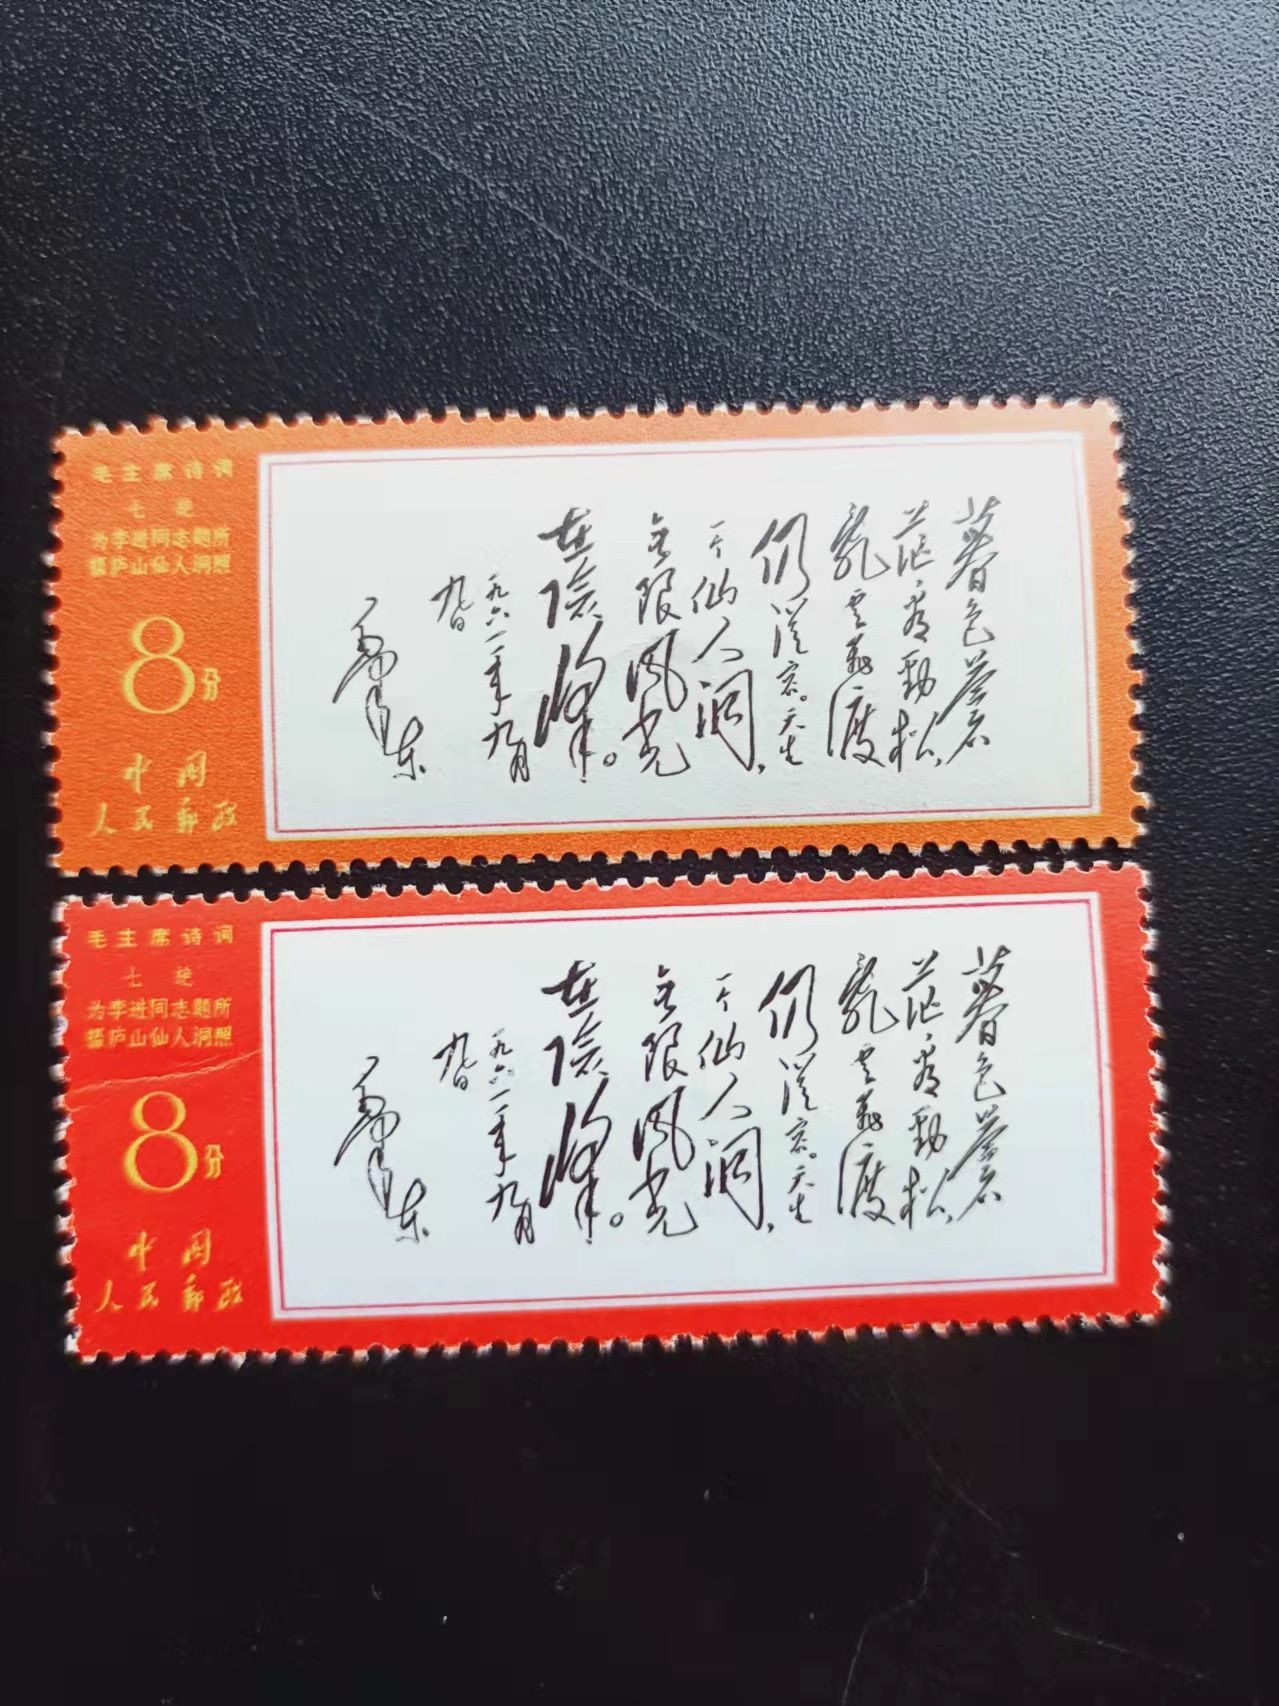 毛主席诗词
七绝
为李进同志题所
摄庐山仙人洞照
8分
中国
人民邮政
暮色苍
茫看劲松，
乱云飞渡
仍从容。天生
一个仙人洞，
无限风光
在险峰。
一九六一年九月
九日
毛泽东
毛主席诗词
七绝
为李进同志题所
摄庐山仙人洞照
8分
中国
人民邮政
暮色苍
茫看劲松，
乱云飞渡
仍从容。天生
一个仙人洞，
无限风光
在险峰。
一九六一年九月
九日
毛泽东